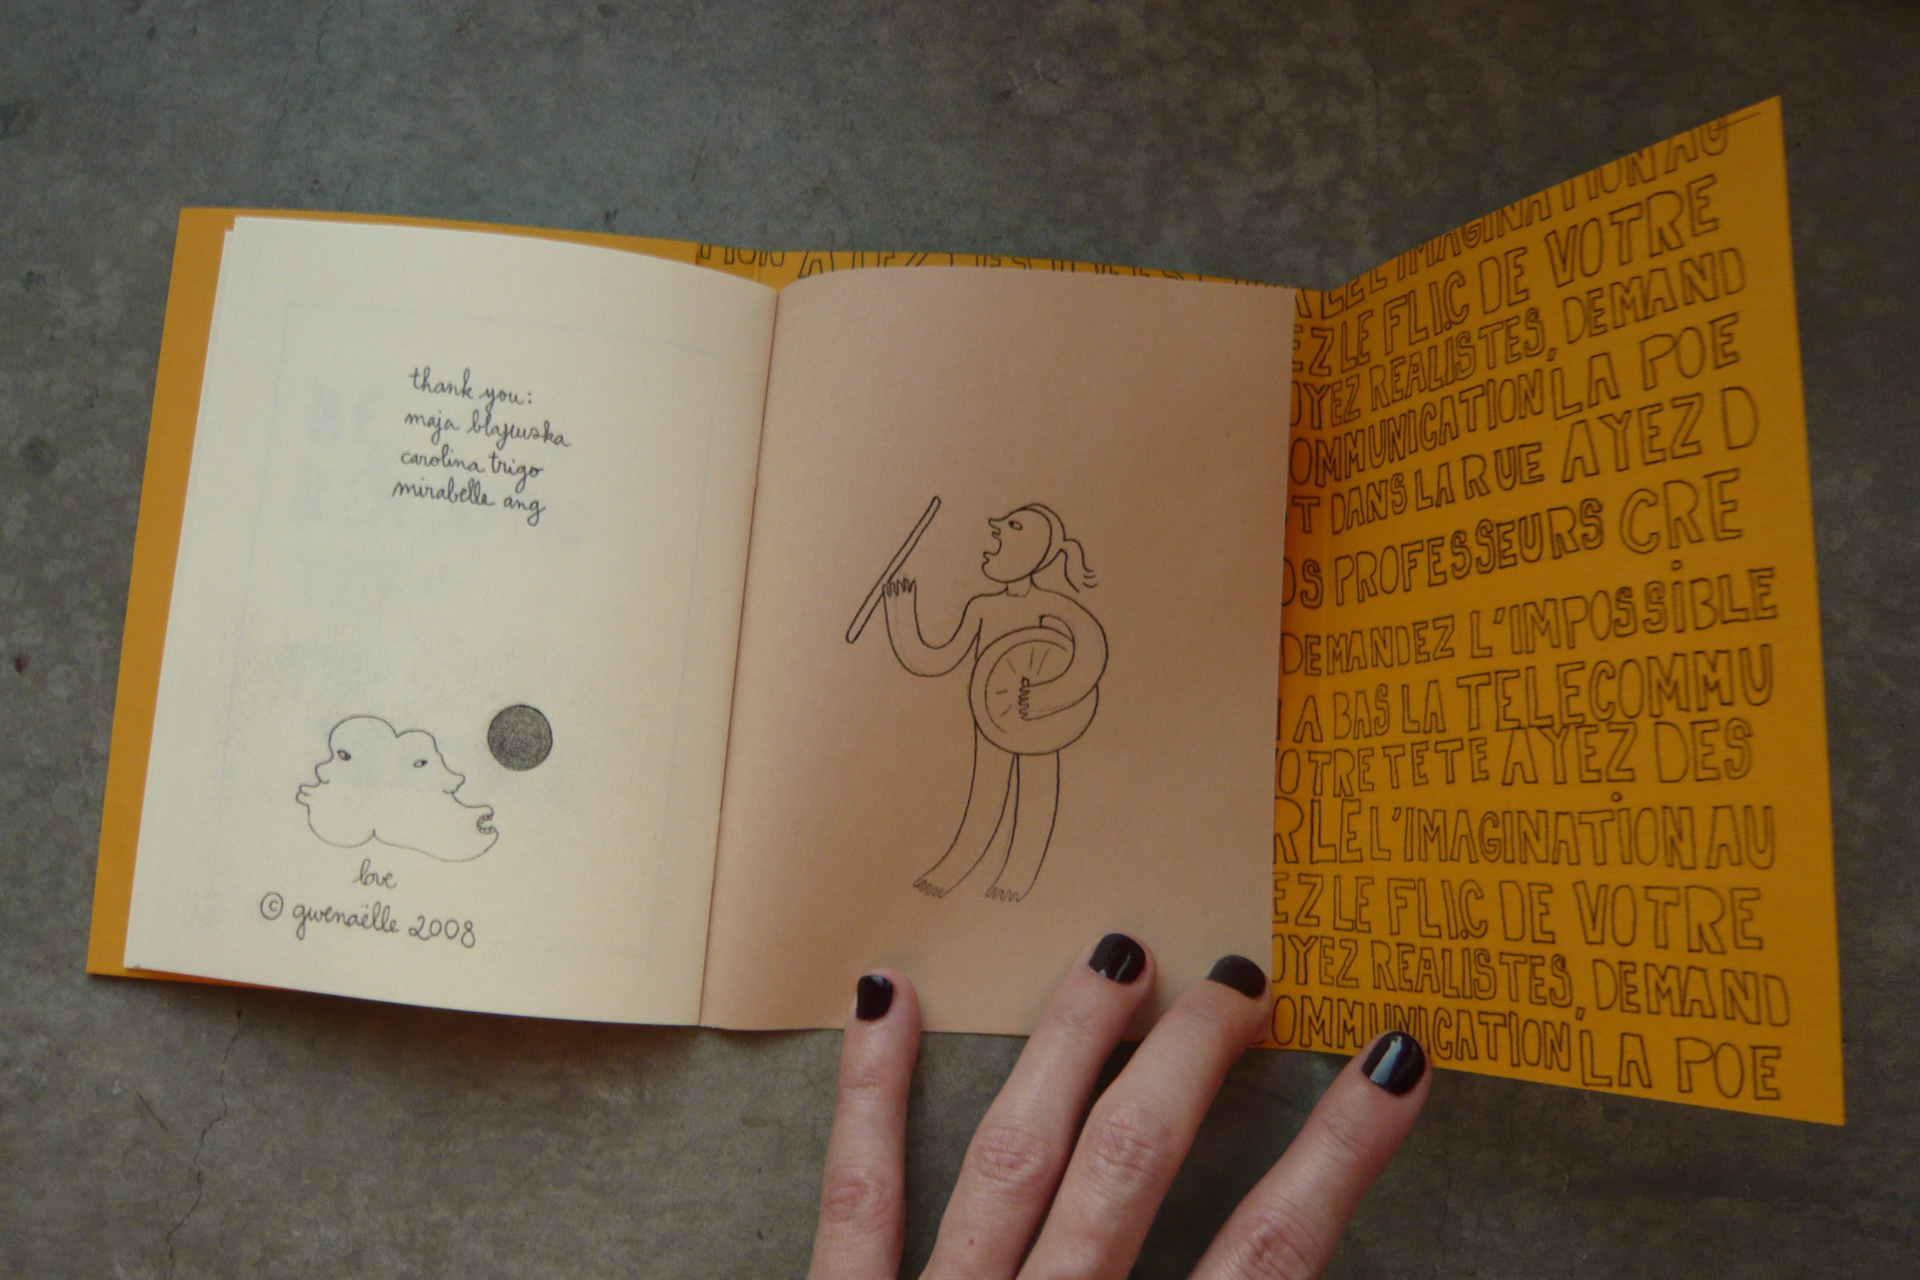 thank you:
maja blajuska
carolina trigo
mirabelle ang
love
© gwenaëlle 2008
L'IMAGINATION AU
LE FLIC DE VOTRE
REALISTES, DEMAND
OMMUNICATION LA POE
T DANS LA RUE AYEZ D
OS PROFESSEURS CRE
DEMANDEZ L'IMPOSSIBLE
A BAS LA TELECOMMU
OTRE TETE AYEZ DES
RLE L'IMAGINATION AU
EZ LE FLIC DE VOTRE
OYEZ REALISTES, DEMAND
COMMUNICATION LA POE